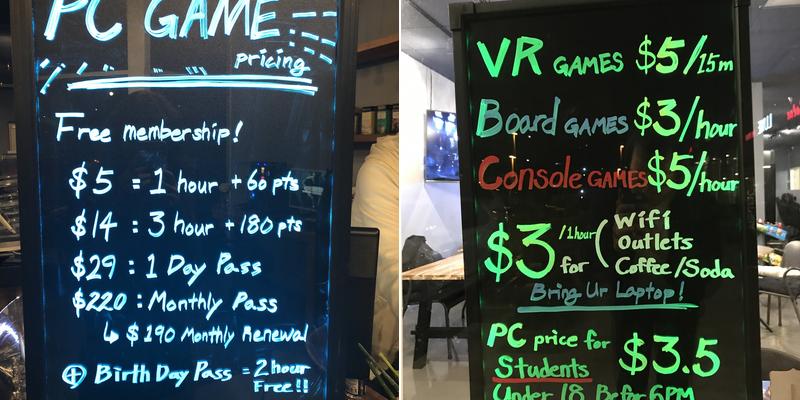 PC GAME
pricing
Free membership!
$5 = 1 hour + 60 pts
$14 : 3 hour + 180 pts
$29 : 1 Day Pass
$220 : Monthly Pass
↳ $190 Monthly Renewal
⊕ Birth Day Pass = 2 hour
Free!!
VR GAMES $5/15m
Board GAMES $3/hour
Console GAMES $5/hour
$3 /1hour for ( Wifi
Outlets
Coffee/Soda
Bring Ur Laptop!
PC price for
Students $3.5
Under 18 Befor 6PM